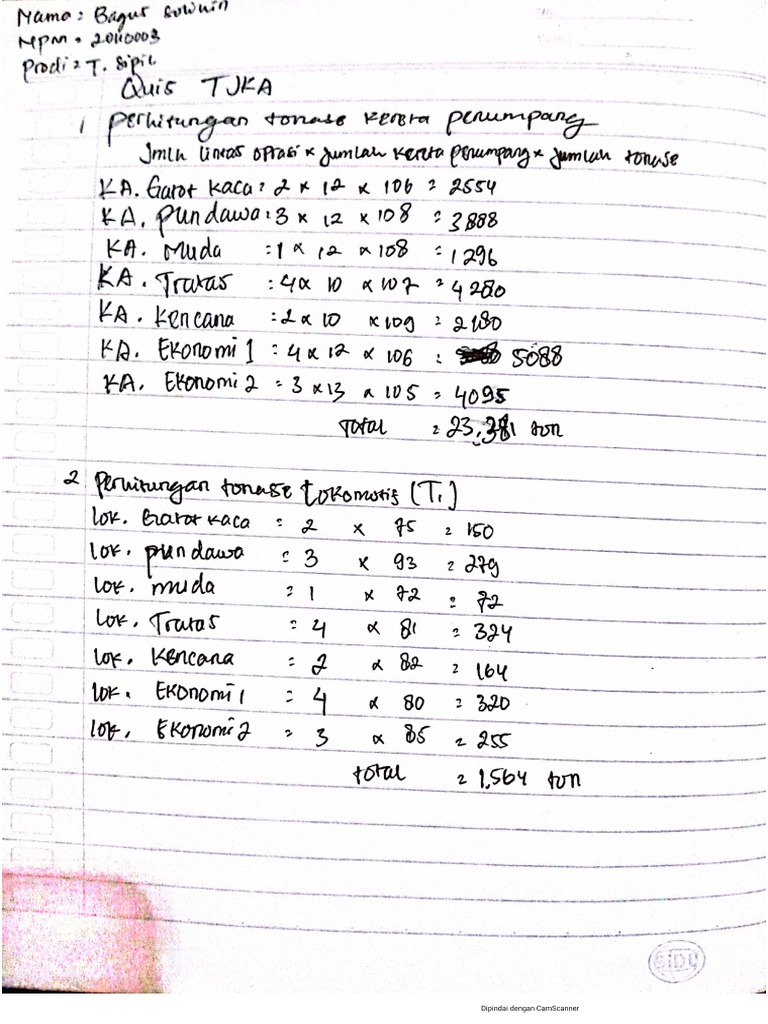 Nama : Bagus
NPM = 20110003
Prodi = T. Sipil
Quis TJKA
1 Perhitungan tonase kereta penumpang
Jmlh lintas oprasi × jumlah kereta penumpang × jumlah tonase
KA. Gatot kaca : 2 × 12 × 106 = 2554
KA. Pundawa : 3 × 12 × 108 = 3888
KA. Muda : 1 × 12 × 108 = 1296
KA. Tratas : 4 × 10 × 107 = 4280
KA. Kencana : 2 × 10 × 109 = 2180
KA. Ekonomi 1 = 4 × 12 × 106 = 5088
KA. Ekonomi 2 = 3 × 13 × 105 = 4095
Total = 23.381 ton
2 Perhitungan tonase Lokomotif (T1)
Lok. Gatot kaca = 2 × 75 = 150
Lok. pundawa = 3 × 93 = 279
Lok. muda = 1 × 72 = 72
Lok. Tratas = 4 × 81 = 324
Lok. Kencana = 2 × 82 = 164
Lok. Ekonomi 1 = 4 × 80 = 320
Lok. Ekonomi 2 = 3 × 85 = 255
total = 1.564 ton
SiDU
Dipindai dengan CamScanner